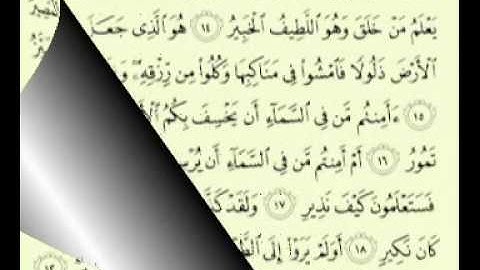 يَعْلَمُ مَنْ خَلَقَ وَهُوَ ٱللَّطِيفُ ٱلْخَبِيرُ ١٤ هُوَ ٱلَّذِى جَعَلَ
ٱلْأَرْضَ ذَلُولًا فَٱمْشُوا۟ فِى مَنَاكِبِهَا وَكُلُوا۟ مِن رِّزْقِهِۦ
١٥ ءَأَمِنتُم مَّن فِى ٱلسَّمَآءِ أَن يَخْسِفَ بِكُمُ
تَمُورُ ١٦ أَمْ أَمِنتُم مَّن فِى ٱلسَّمَآءِ أَن
فَسَتَعْلَمُونَ كَيْفَ نَذِيرِ ١٧ وَلَقَدْ
كَانَ نَكِيرِ ١٨ أَوَلَمْ يَرَوْا۟ إِلَى